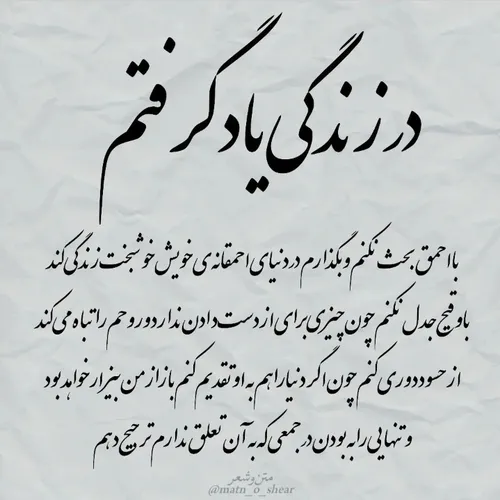 در زندگی یاد گرفتم
با احمق بحث نکنم و بگذارم در دنیای احمقانه‌ی خویش خوشبخت زندگی کند
با وقیح جدل نکنم چون چیزی برای از دست دادن ندارد و روحم را تباه می‌کند
از حسود دوری کنم چون اگر دنیا را هم به او تقدیم کنم باز از من بیزار خواهد بود
و تنهایی را به بودن در جمعی که به آن تعلق ندارم ترجیح دهم
متن و شعر
@matn_o_shear